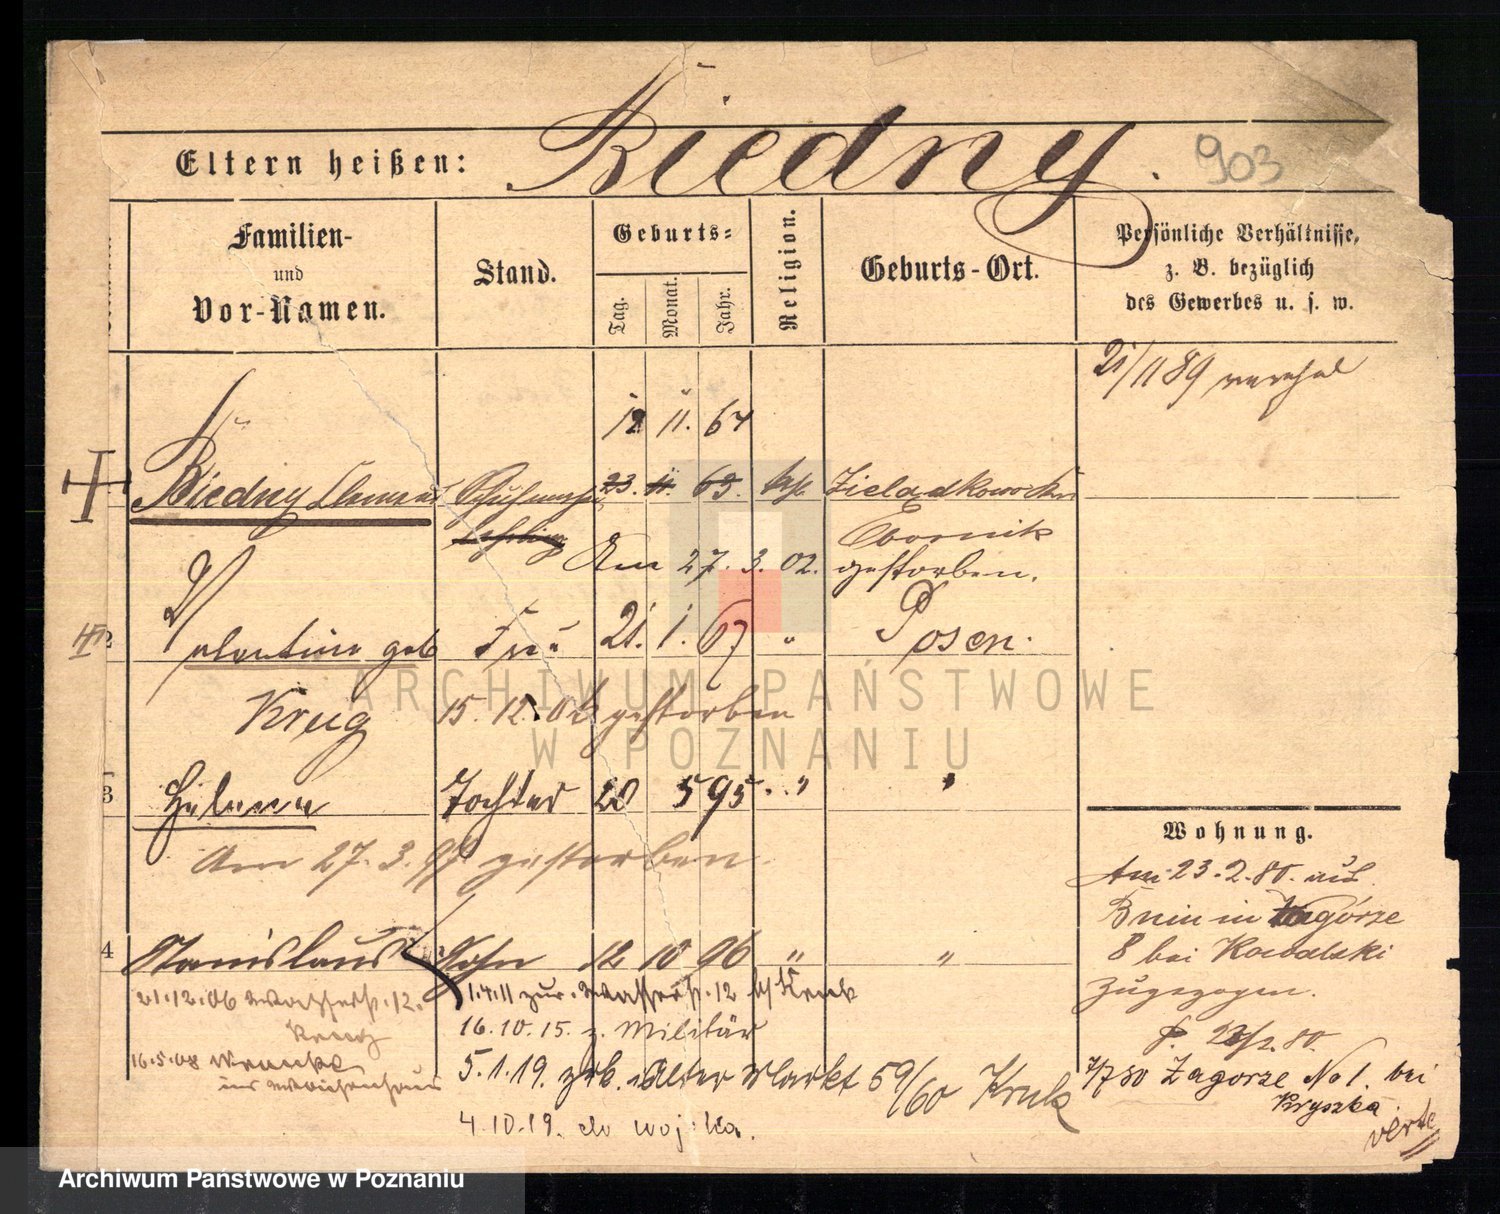 Eltern heißen: Biedny. 903
Familien-
und
Vor-Namen.
Stand.
Geburts-
Tag.
Monat.
Jahr.
Religion.
Geburts-Ort.
Persönliche Verhältnisse,
z. B. bezüglich
des Gewerbes u. s. w.
21/11 89
12 11. 64
Biedny 23. 11. 63. kath
Obornik
Am 27. 3. 02. gestorben.
2 Valentine geb Frau 21. 1. 67 " Posen.
Krug 15. 12. gestorben
3 Helena Tochter 20 5 95 " "
Am 27. 3. 97 gestorben.
4 Stanislaus Sohn 12 10 96 " "
21.12.06 Wasserstr. 12.
Kruk
16.5.08
ins Waisenhaus
1.4.11 zur. Wasserstr. 12 b/ Kruk
16.10.15. z. Militär
5.1.19. zrk. Alter Markt 59/60 Kruk
4.10.19. do wojska.
Wohnung.
Am 23.2.80. aus
Bnin in Zagórze
8 bei Kowalski
zugezogen.
7/7 80 Zagorze No 1. bei
Kryszka
verte
ARCHIWUM PAŃSTWOWE
W POZNANIU
Archiwum Państwowe w Poznaniu